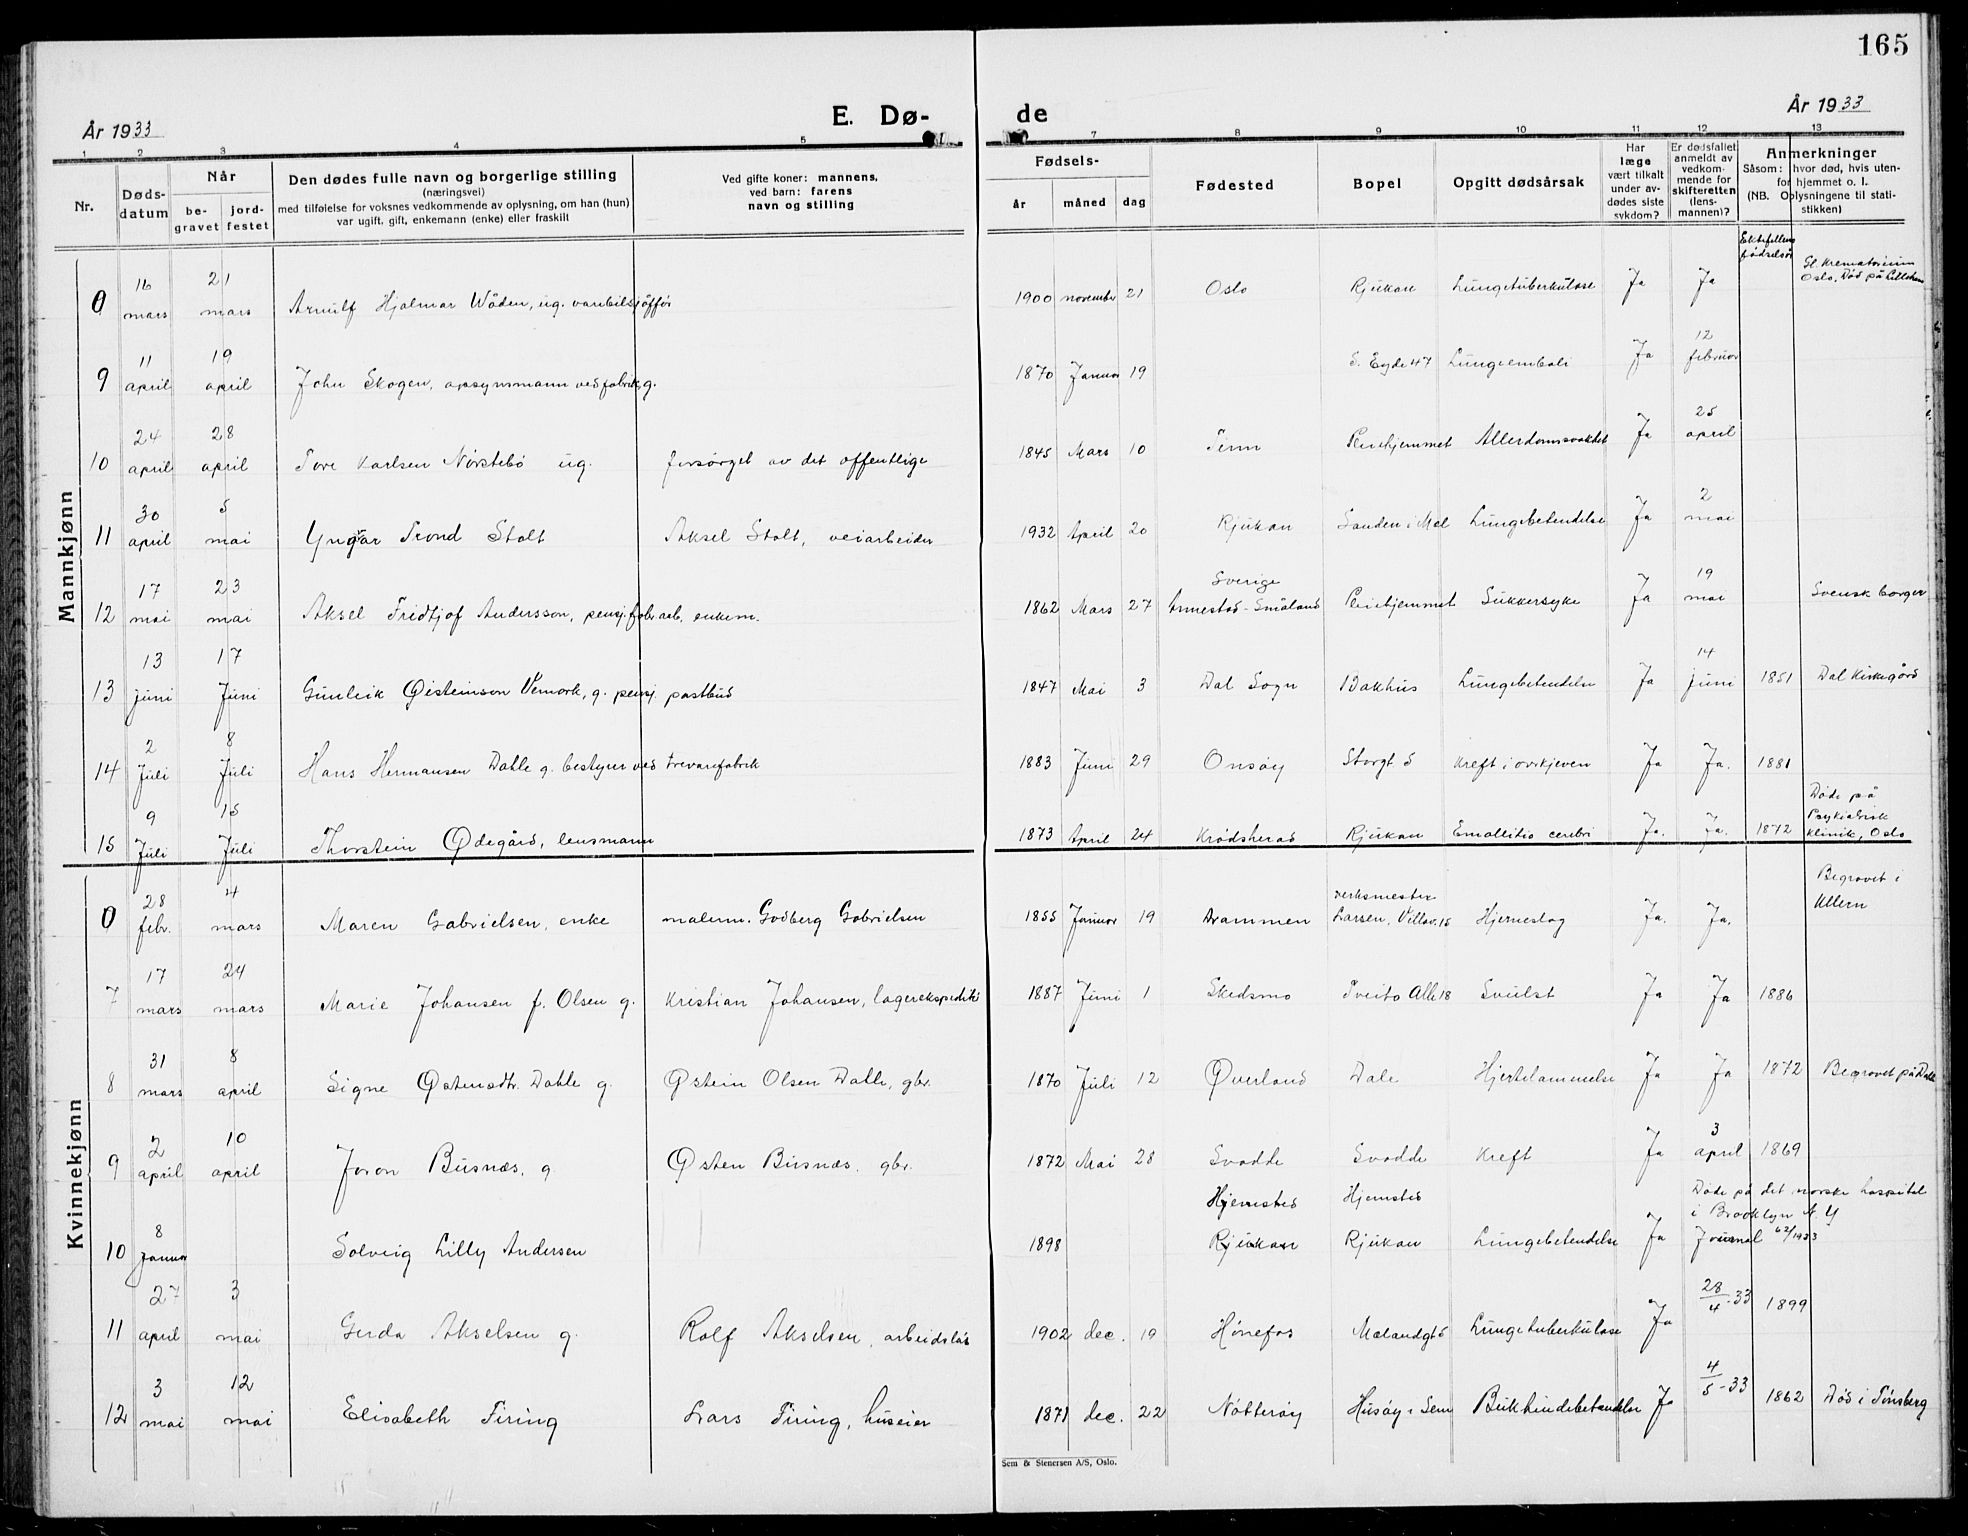 165
År 1933
E. Dø-
de
År 1933
1 2 3 4 5 7 8 9 10 11 12 13
Nr.
Døds-
datum
Når
be-
gravet
jord-
festet
Den dødes fulle navn og borgerlige stilling
(næringsvei)
med tilføielse for voksnes vedkommende av oplysning, om han (hun)
var ugift, gift, enkemann (enke) eller fraskilt
Ved gifte koner: mannens,
ved barn: farens
navn og stilling
Fødsels-
år måned dag
Fødested
Bopel
Opgitt dødsårsak
Har
læge
vært tilkalt
under av-
dødes siste
sykdom?
Er dødsfallet
anmeldt av
vedkom-
mende for
skifteretten
(lens-
mannen)?
Anmerkninger
Såsom: hvor død, hvis uten-
for hjemmet o. l.
(NB. Oplysningene til stati-
stikken)
Ektefellens
fødselsår
Mannkjønn
0 16 mars 21 mars Arnulf Hjalmar Wåden, ug. varebilsjåffør 1900 november 21 Oslo Rjukan Lungetuberkulose Ja Ja Gl. Krematorium Oslo, Død på
9 11 april 19 april John Skogen, opsynsmann ved fabrik, g. 1870 Januar 19 S. Eyde 47 Lungeemboli Ja 12 februar
10 24 april 28 april Tore Karlsen Nørstebö ug. forsörget av det offentlige 1845 Mars 10 Tinn Pleiehjemmet Allerdomsvakhet Ja 25 april
11 30 april 5 mai Yngvar Trond Stolt Aksel Stolt, veiarbeider 1932 April 20 Rjukan Sanden i Mel Lungebetendelse Ja 2 mai
12 17 mai 23 mai Aksel Fridtjof Andersson, pensj. fabr. arb. enkem. 1862 Mars 27 Sverige Småland Pleiehjemmet Sukkersyke Ja 19 mai Svensk borger
13 13 juni 17 Juni Gunleik Øisteinson Vemork, g. pensj. postbud 1847 Mai 3 Dal Sogn Bakhus Lungebetendelse Ja 14 juni 1851 Dal Kirkegård
14 2 Juli 8 Juli Hans Hermansen Dahle g. bestyrer ved trevarefabrik 1883 Juni 29 Onsøy Storgt. 5 Kreft i overkjeven Ja Ja. 1881
15 9 Juli 15 Juli Thorstein Ødegård, lensmann 1873 April 24 Krødsherad Rjukan Emollitio cerebri Ja. Ja. 1872 Døde på Psykiatrisk klinik, Oslo
Kvinnekjønn
0 28 febr. 4 mars Maren Gabrielsen, enke malerm. Godberg Gabrielsen 1855 Januar 19 Drammen verksmester Larsen, 15 Hjerneslag Ja. Ja. Begravet i Ullern
7 17 mars 24 mars Marie Johansen f. Olsen g. Kristian Johansen, lagerekspeditör 1887 Juni 1 Skedsmo Tveito Alle 18 Svulst Ja Ja 1886
8 31 mars 8 april Signe Østensdtr. Dahle g. Østein Olsen Dahle, gbr. 1870 Juli 12 Øverland Dale Hjertelammelse Ja Ja 1872 Begravet på Dal
9 2 april 10 april Joron Busnæs, g. Østen Busnæs, gbr. 1872 Mai 28 Svadde Svadde Kreft Ja 3 april 1869
10 8 Januar Solveig Lilly Andersen 1898 Hjemsted Rjukan Hjemsted Rjukan Lungebetendelse Ja Døde på det norske hospital i Brooklyn N. Y Journal 62/1933
11 27 april 3 mai Gerda Akselsen g. Rolf Akselsen, arbeidsløs 1902 dec. 19 Hönefos Mælandgt 5 Lungetuberkulose Ja 28/4-33 1899
12 3 mai 12 mai Elisabeth Firing Lars Firing, huseier 1871 dec. 22 Nøtterøy Husøy i Sem Bukhindebetendelse Ja 4/5-33 1862 Død i Tønsberg
Sem & Stenersen A/S, Oslo.